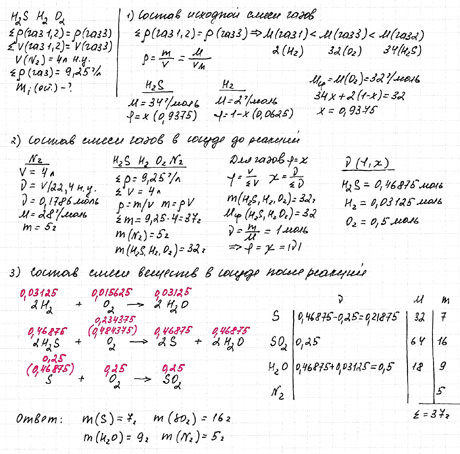 H₂S H₂ O₂
Σρ(газ1,2)=ρ(газ3)
ΣV(газ1,2)=V(газ3)
V(N₂)=4л н.у.
Σρ(газ)=9,25г/л
mᵢ(ост.)-?
1) Состав исходной смеси газов
Σρ(газ1,2)=ρ(газ3) ⇒ M(газ1) < M(газ3) < M(газ2)
2(H₂) 32(O₂) 34(H₂S)
ρ = m/V = M/Vm
H₂S
M=34г/моль
φ=x (0,9375)
H₂
M=2г/моль
φ=1-x (0,0625)
Mср=M(O₂)=32г/моль
34x+2(1-x)=32
x=0,9375
2) Состав смеси газов в сосуде до реакций
N₂
V=4л
ν=V/22,4 н.у.
ν=0,1786моль
M=28г/моль
m=5г
H₂S H₂ O₂ N₂
Σρ=9,25г/л
ΣV=4л
ρ=m/V m=ρV
Σm=9,25·4=37г
m(N₂)=5г
m(H₂S,H₂,O₂)=32г
Для газов φ=x
φ=V/ΣV x=ν/Σν
m(H₂S,H₂,O₂)=32г
Mср(H₂S,H₂,O₂)=32
ν=m/M=1моль
⇒ φ=x=|ν|
ν(φ,x)
H₂S=0,46875моль
H₂=0,03125моль
O₂=0,5моль
3) Состав смеси веществ в сосуде после реакций
0,03125 0,015625 0,03125
2H₂ + O₂ → 2H₂O
0,234375
0,46875 (0,484375) 0,46875 0,46875
2H₂S + O₂ → 2S + 2H₂O
0,25
(0,46875) 0,25 0,25
S + O₂ → SO₂
ν M m
S 0,46875-0,25=0,21875 32 7
SO₂ 0,25 64 16
H₂O 0,46875+0,03125=0,5 18 9
N₂ 5
Σ=37г
Ответ: m(S)=7г m(SO₂)=16г
m(H₂O)=9г m(N₂)=5г